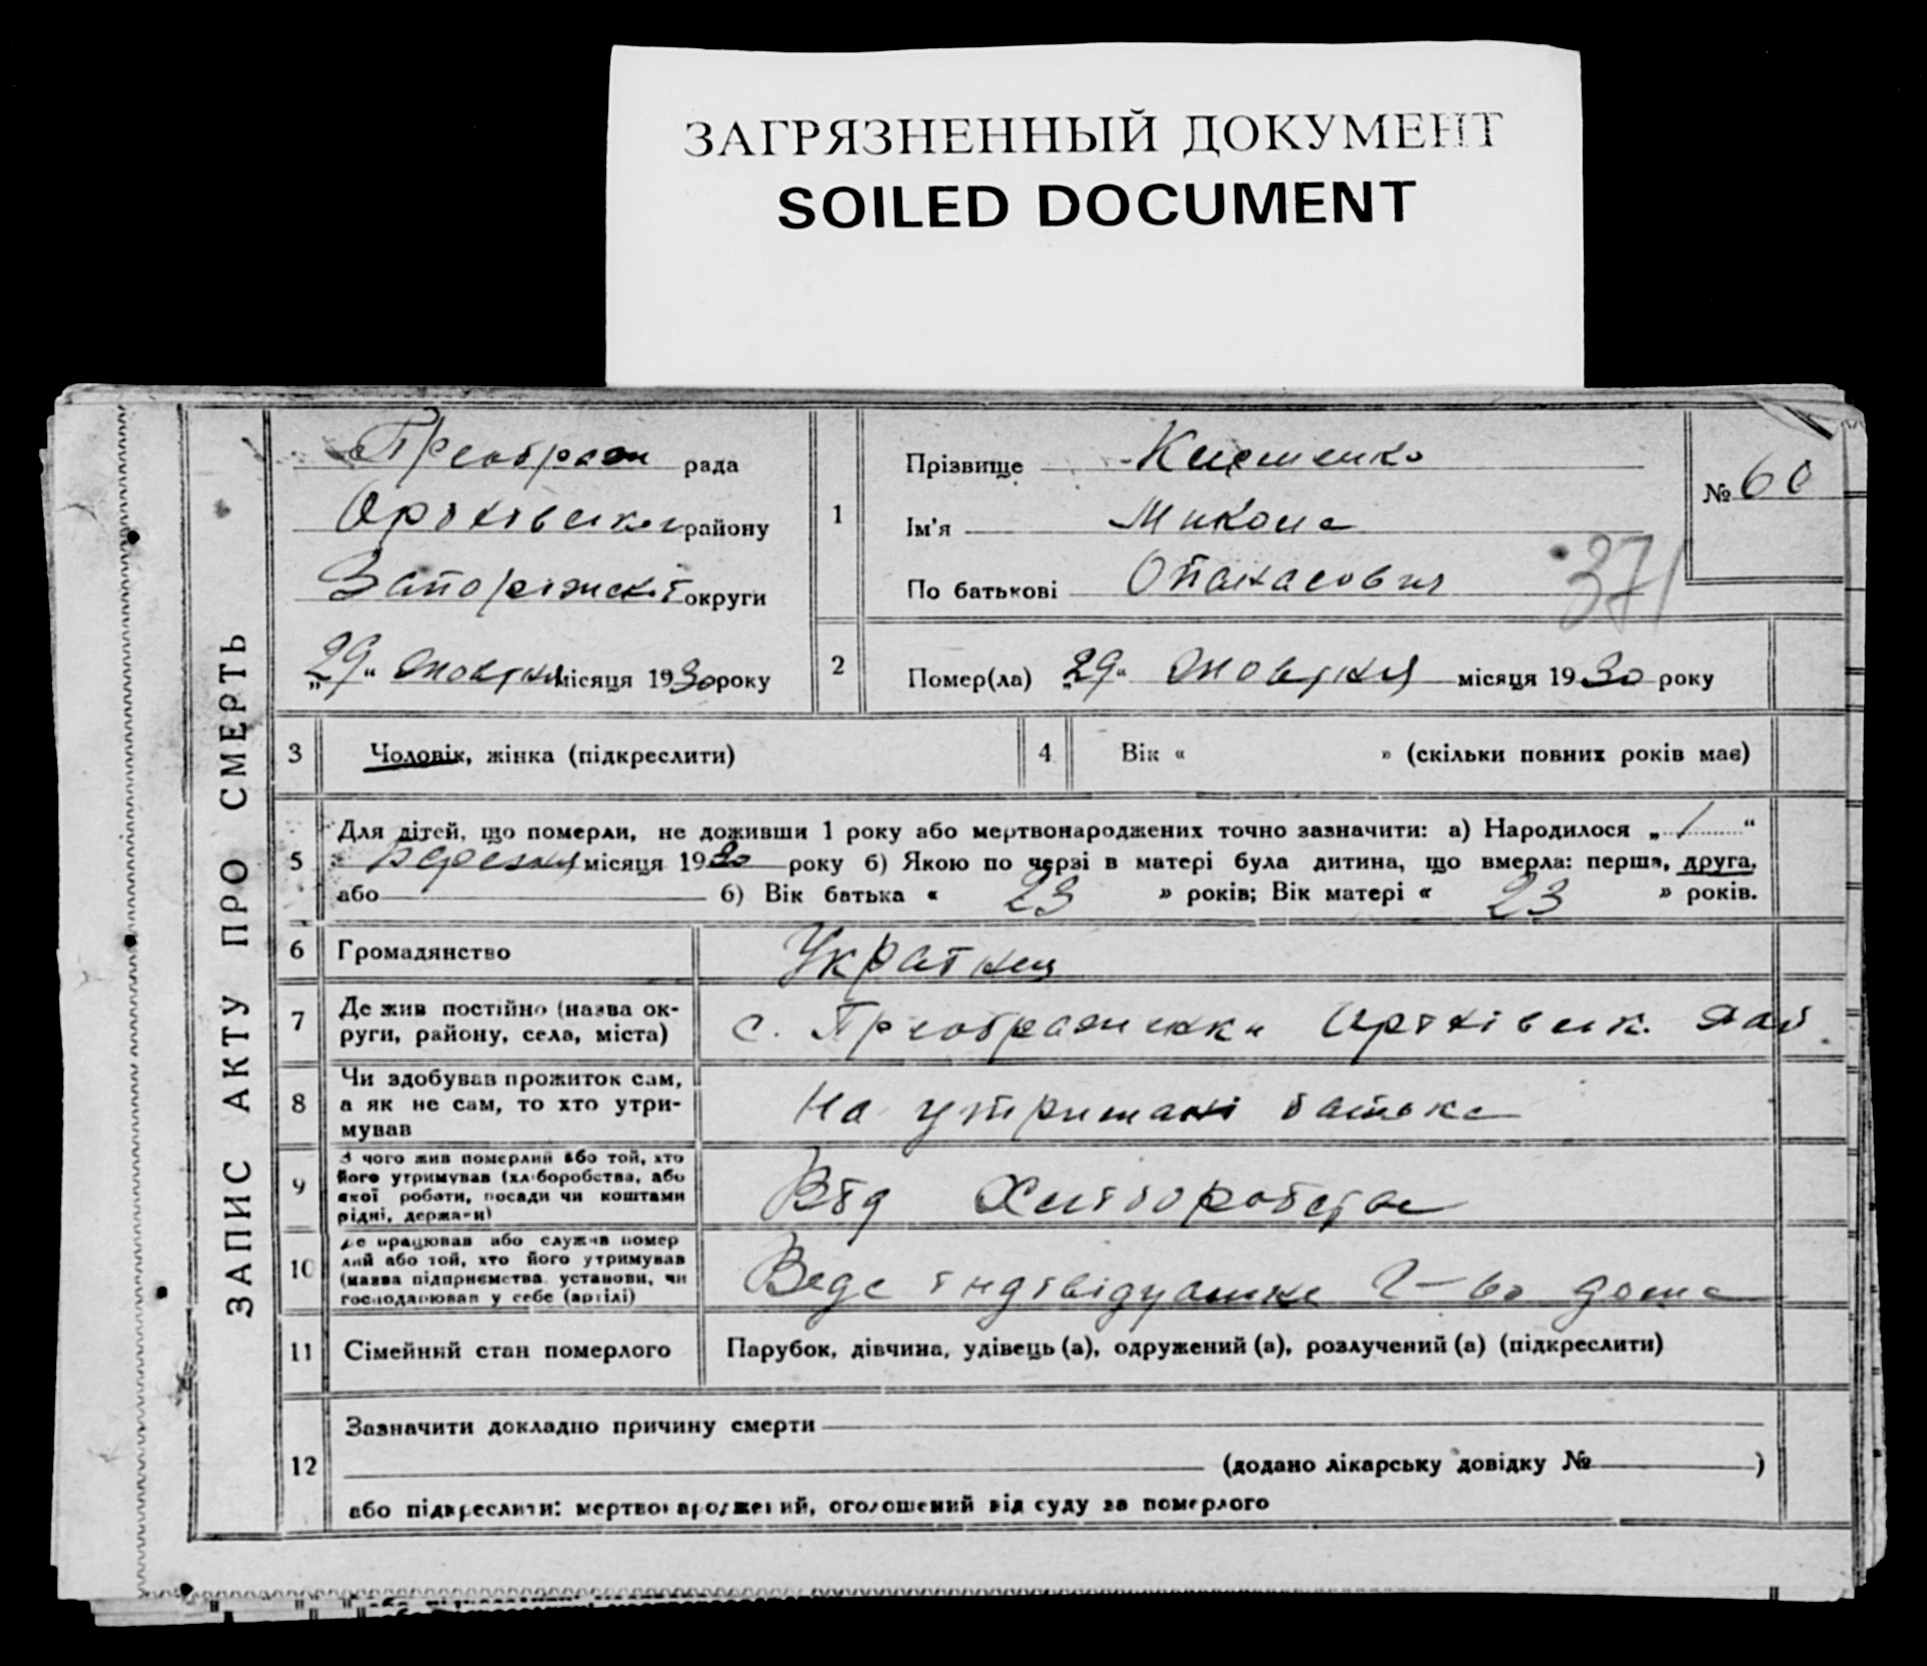 ЗАГРЯЗНЕННЫЙ ДОКУМЕНТ
SOILED DOCUMENT
ЗАПИС АКТУ ПРО СМЕРТЬ
Преображ рада
Оріхівськ району
Запоріжскої округи
„29“ жовтня місяця 1930 року
1
Прізвище
Ім'я Микола
По батькові Опанасович
№ 60
371
2
Помер(ла) „29“ жовтня місяця 1930 року
3 Чоловік, жінка (підкреслити)
4 Вік « » (скільки повних років має)
5
Для дітей, що померли, не доживши 1 року або мертвонароджених точно зазначити: а) Народилося „1“
Березня місяця 1930 року б) Якою по черзі в матері була дитина, що вмерла: перша, друга,
або б) Вік батька « 23 » років; Вік матері « 23 » років.
6 Громадянство
7 Де жив постійно (назва ок-
руги, району, села, міста)
с. Преображенка Оріхівськ. Рай
8 Чи здобував прожиток сам,
а як не сам, то хто утри-
мував
На утримані батька
9 З чого жив померлий або той, хто
його утримував (хліборобства, або
якої роботи, посади чи коштами
рідні, держави)
Від Хліборобства
10 Де працював або служив помер
лий або той, хто його утримував
(назва підприємства, установи, чи
господарював у себе (артілі)
Веде індівідуальне дома
11 Сімейний стан померлого
Парубок, дівчина, удівець (а), одружений (а), розлучений (а) (підкреслити)
12
Зазначити докладно причину смерти
(додано лікарську довідку № )
або підкреслити: мертвонароджений, оголошений від суду за померлого